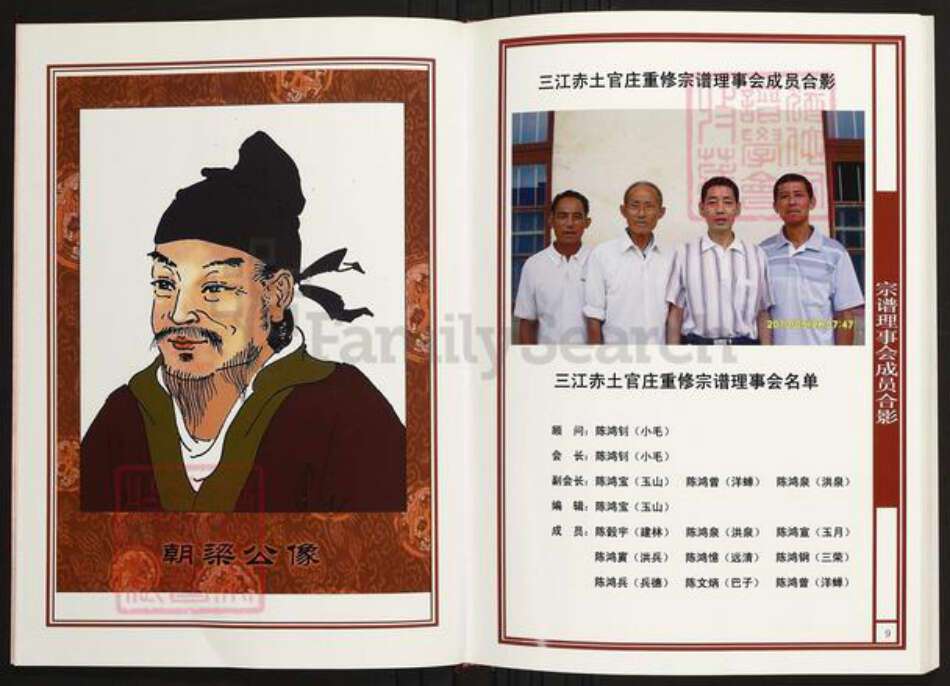 朝梁公像
三江赤土官庄重修宗谱理事会成员合影
2010
17:47
FamilySearch
三江赤土官庄重修宗谱理事会名单
顾 问：陈鸿钊（小毛）
会 长：陈鸿钊（小毛）
副会长：陈鸿宝（玉山） 陈鸿曾（洋蝉） 陈鸿泉（洪泉）
编 辑：陈鸿宝（玉山）
成 员：陈毅宇（建林） 陈鸿泉（洪泉） 陈鸿宣（玉月）
陈鸿寅（洪兵） 陈鸿憶（远清） 陈鸿钢（三荣）
陈鸿兵（兵德） 陈文炳（巴子） 陈鸿曾（洋蝉）
宗谱理事会成员合影
9